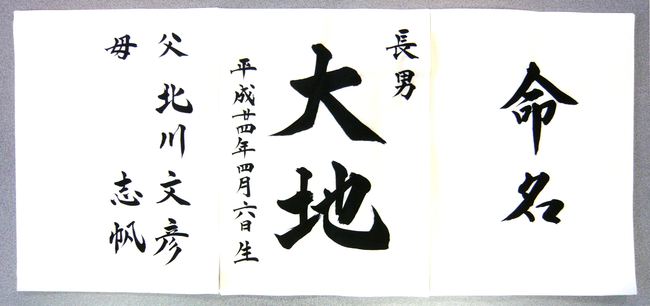 命名
長男
大地
平成廿四年四月六日生
父 北川文彦
母 志帆